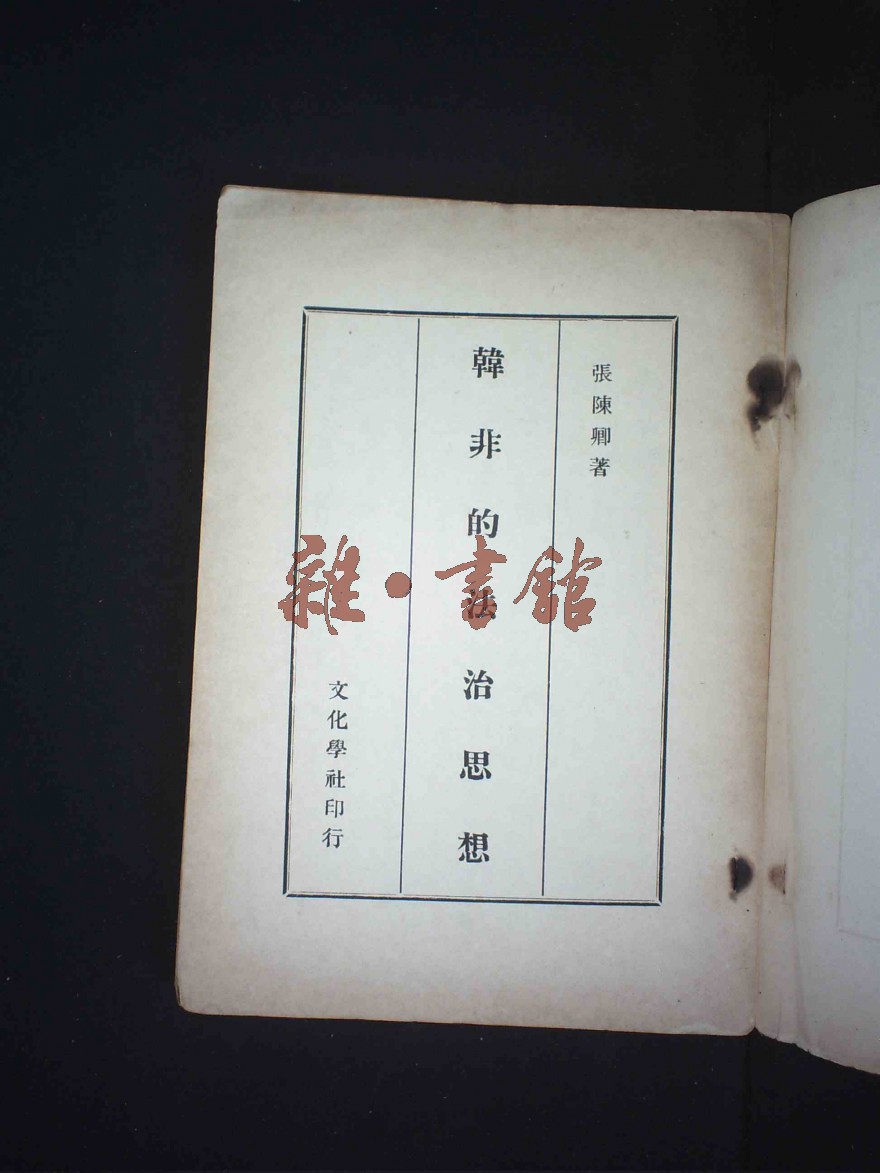 張陳卿著
韓非的法治思想
文化學社印行
雜·書館